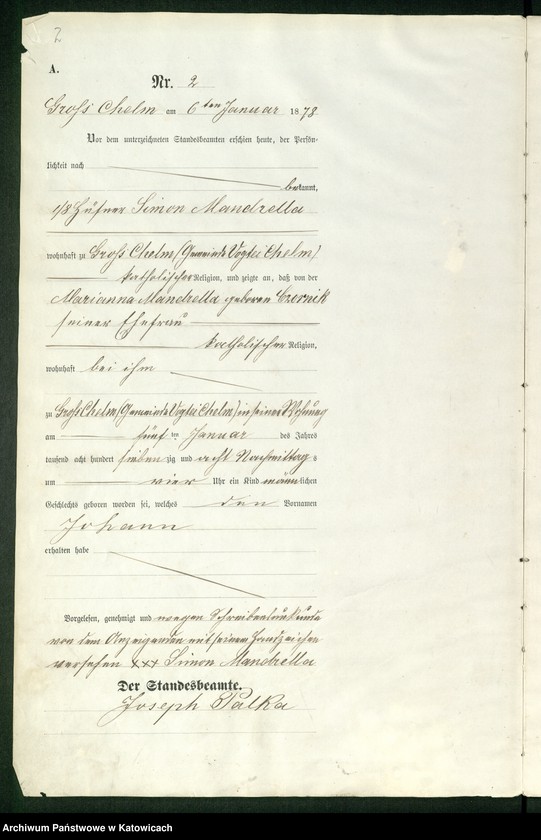 2
A.
Nr. 2
Groß Chelm am 6ten Januar 1878
Vor dem unterzeichneten Standesbeamten erschien heute, der Persön-
lichkeit nach
bekannt,
1/8 Hüfner Simon Mandrella
wohnhaft zu Groß Chelm (Gemeinde Vogtei Chelm)
katholischer Religion, und zeigte an, daß von der
Marianna Mandrella geboren Czernik
seiner Ehefrau
katholischer Religion,
wohnhaft bei ihm
zu Groß Chelm (Gemeinde Vogtei Chelm) in seiner Wohnung
am fünften Januar des Jahres
tausend acht hundert siebenzig und acht Nachmittags
um vier Uhr ein Kind männlichen
Geschlechts geboren worden sei, welches den Vornamen
Johann
erhalten habe
Vorgelesen, genehmigt und wegen Schreibensunkunde
von dem Anzeigenden mit seinem Handzeichen
versehen xxx Simon Mandrella
Der Standesbeamte.
Joseph Palka
Archiwum Państwowe w Katowicach